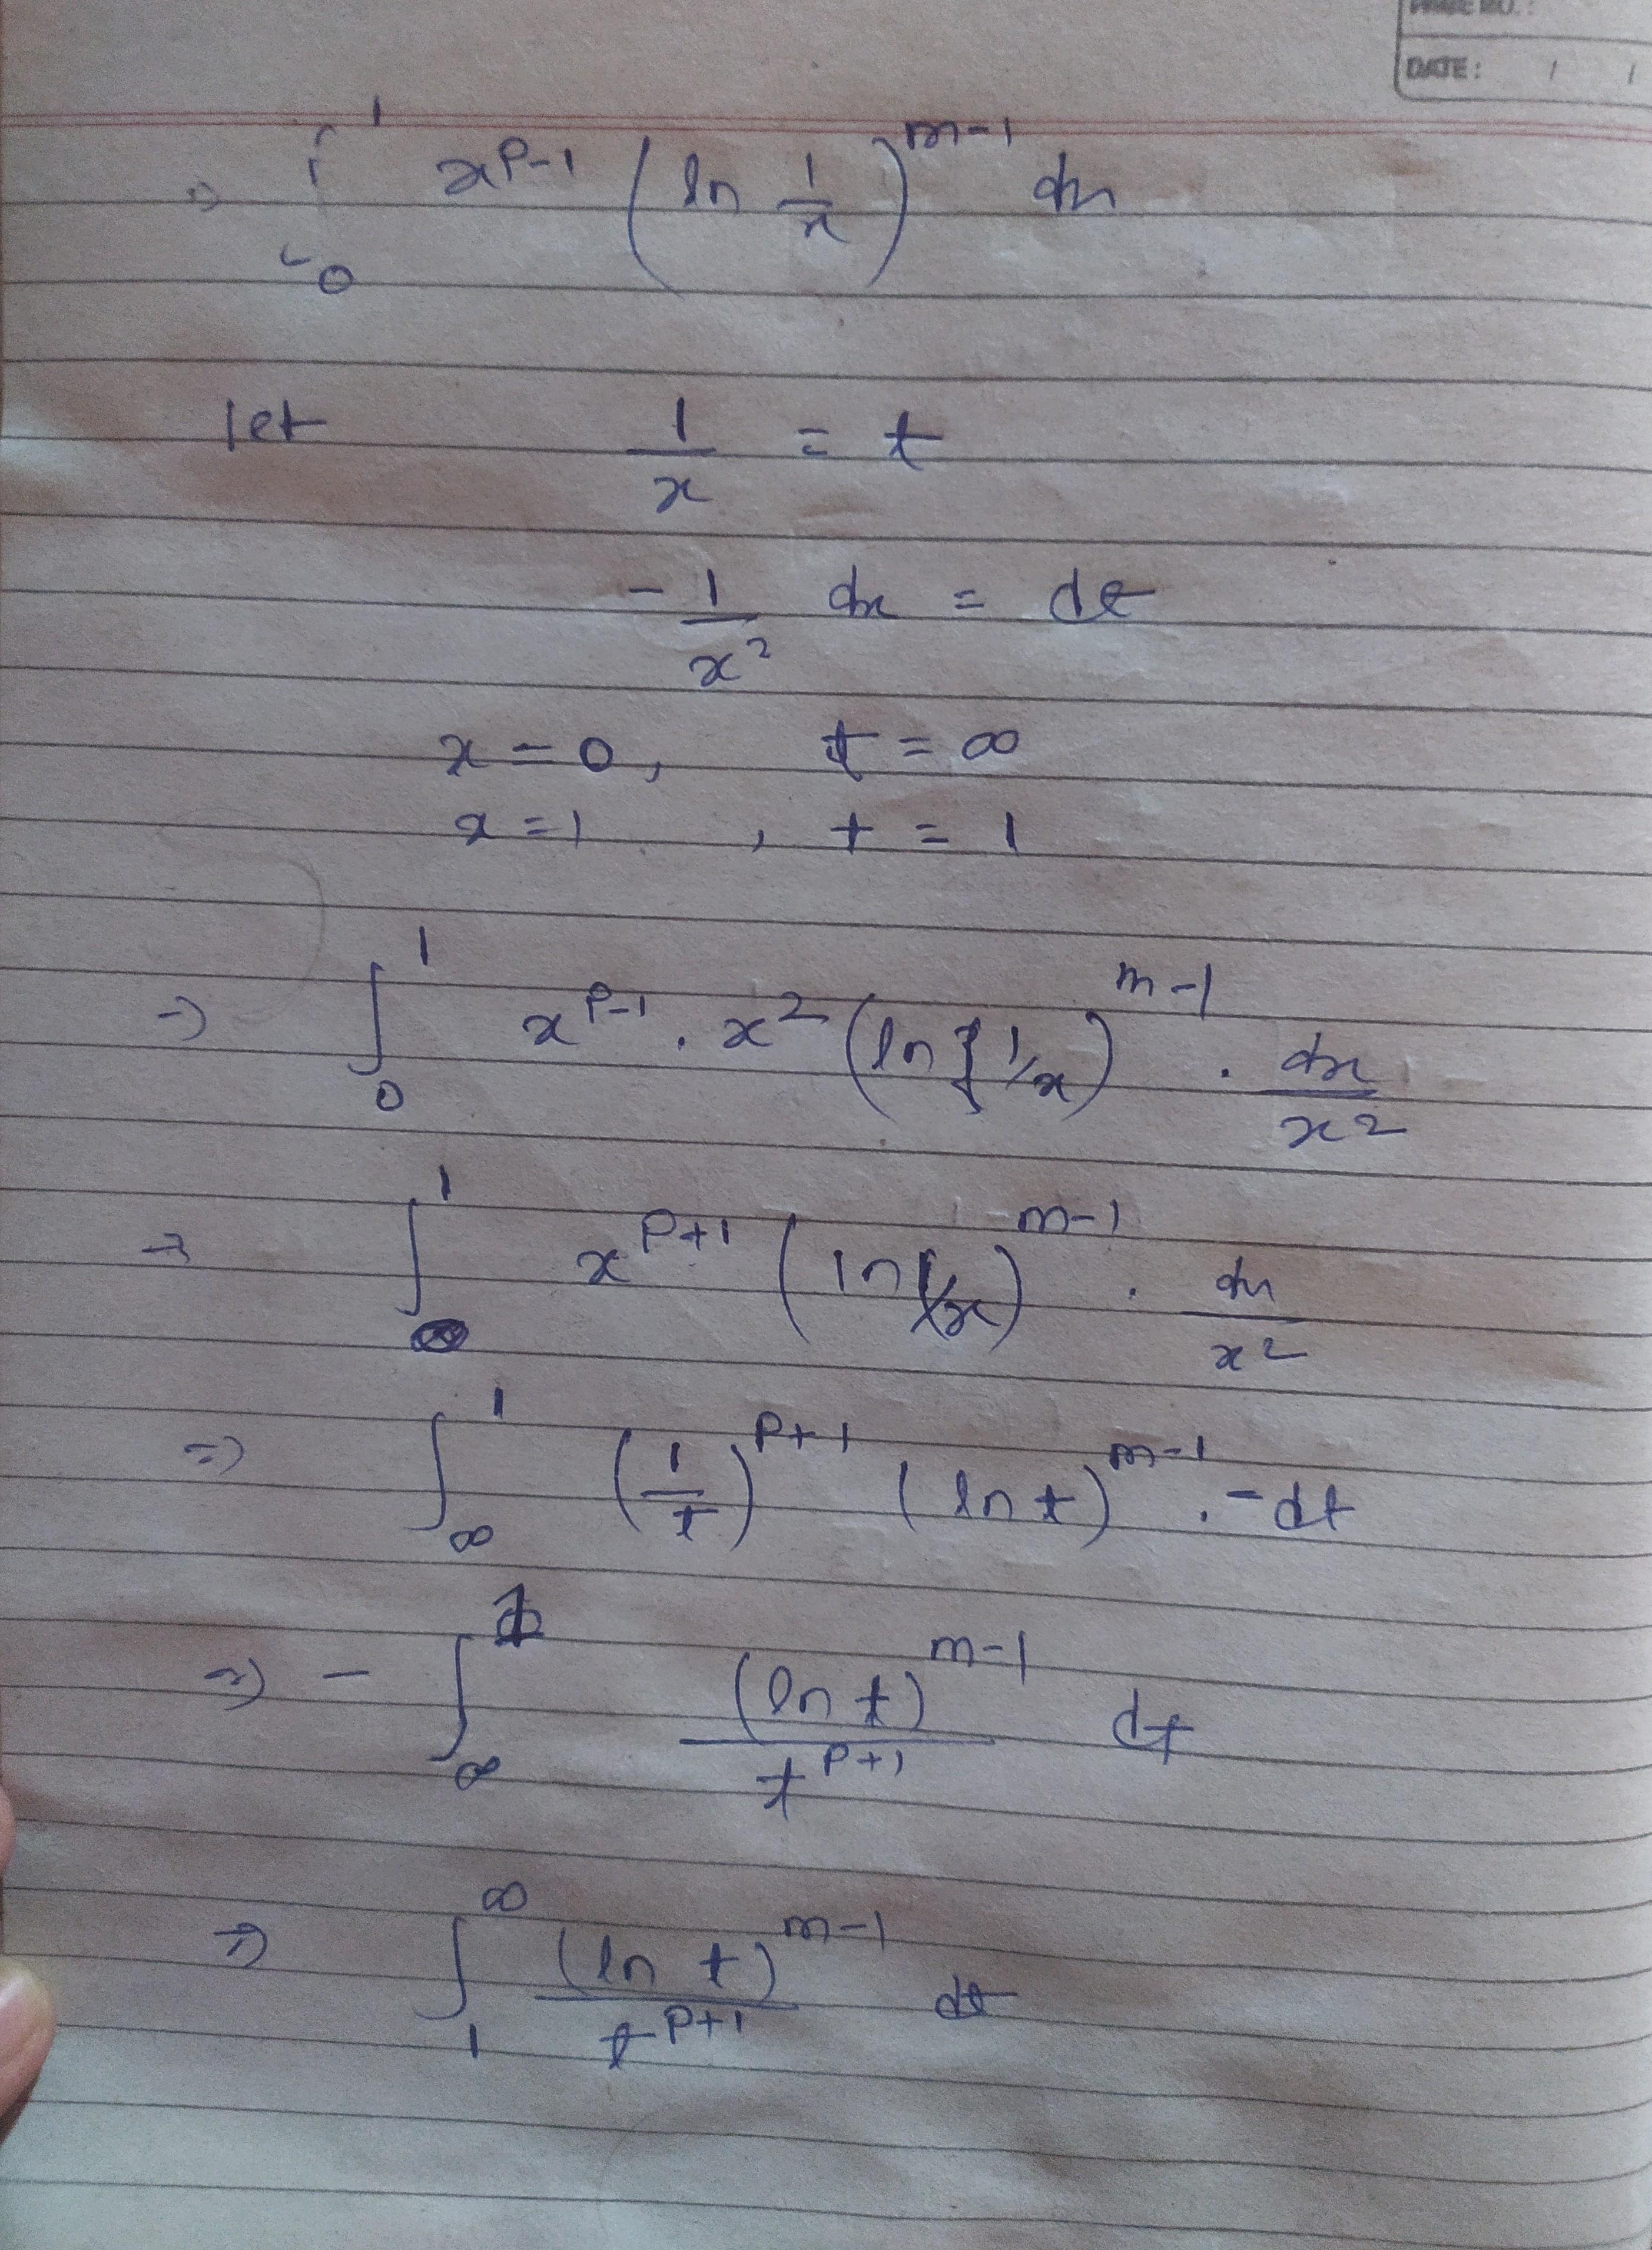 PAGE NO.:
DATE: / /
⇒ ∫_0^1 x^{p-1} (ln 1/x)^{m-1} dx
let 1/x = t
-1/x^2 dx = dt
x = 0, t = ∞
x = 1, t = 1
→ ∫_0^1 x^{p-1} . x^2 (ln 1/x)^{m-1} . dx/x^2
→ ∫^1 x^{p+1} (ln 1/x)^{m-1} . dx/x^2
⇒ ∫_∞^1 (1/t)^{p+1} (ln t)^{m-1} . -dt
⇒ - ∫_∞^1 (ln t)^{m-1} / t^{p+1} dt
⇒ ∫_1^∞ (ln t)^{m-1} / t^{p+1} dt